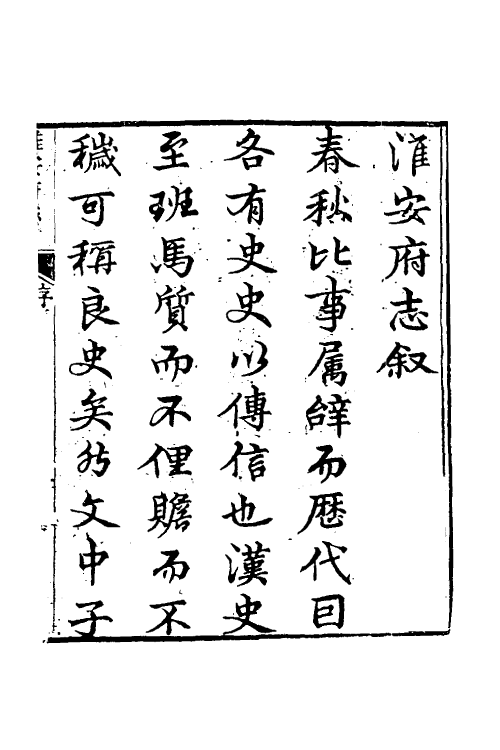 淮安府志叙
春秋比事属辞而歴代因
各有史史以傳信也漢史
至班馬質而不俚贍而不
穢可稱良史矣然文中子
序